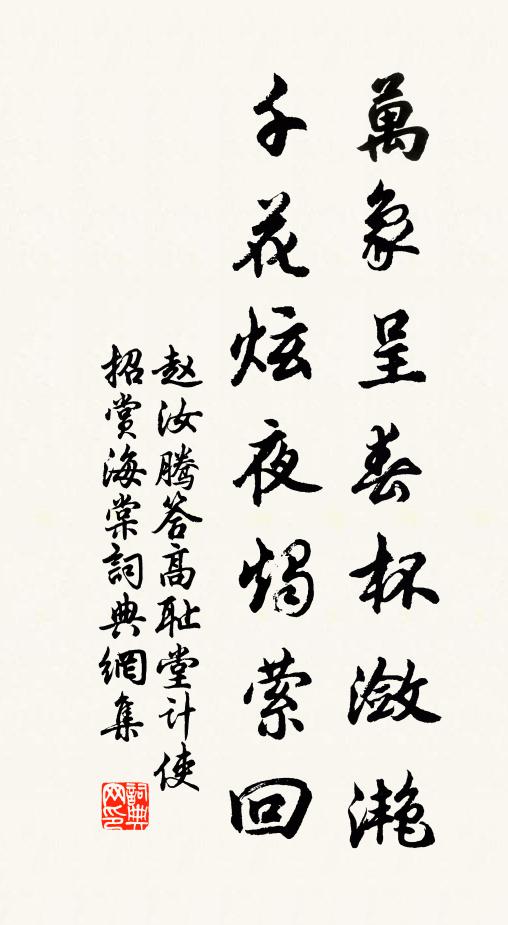 萬象呈春杯瀲灩
千花炫夜燭縈回
赵汝騰答高耻堂计使
招赏海棠詞典網集
詞典网印